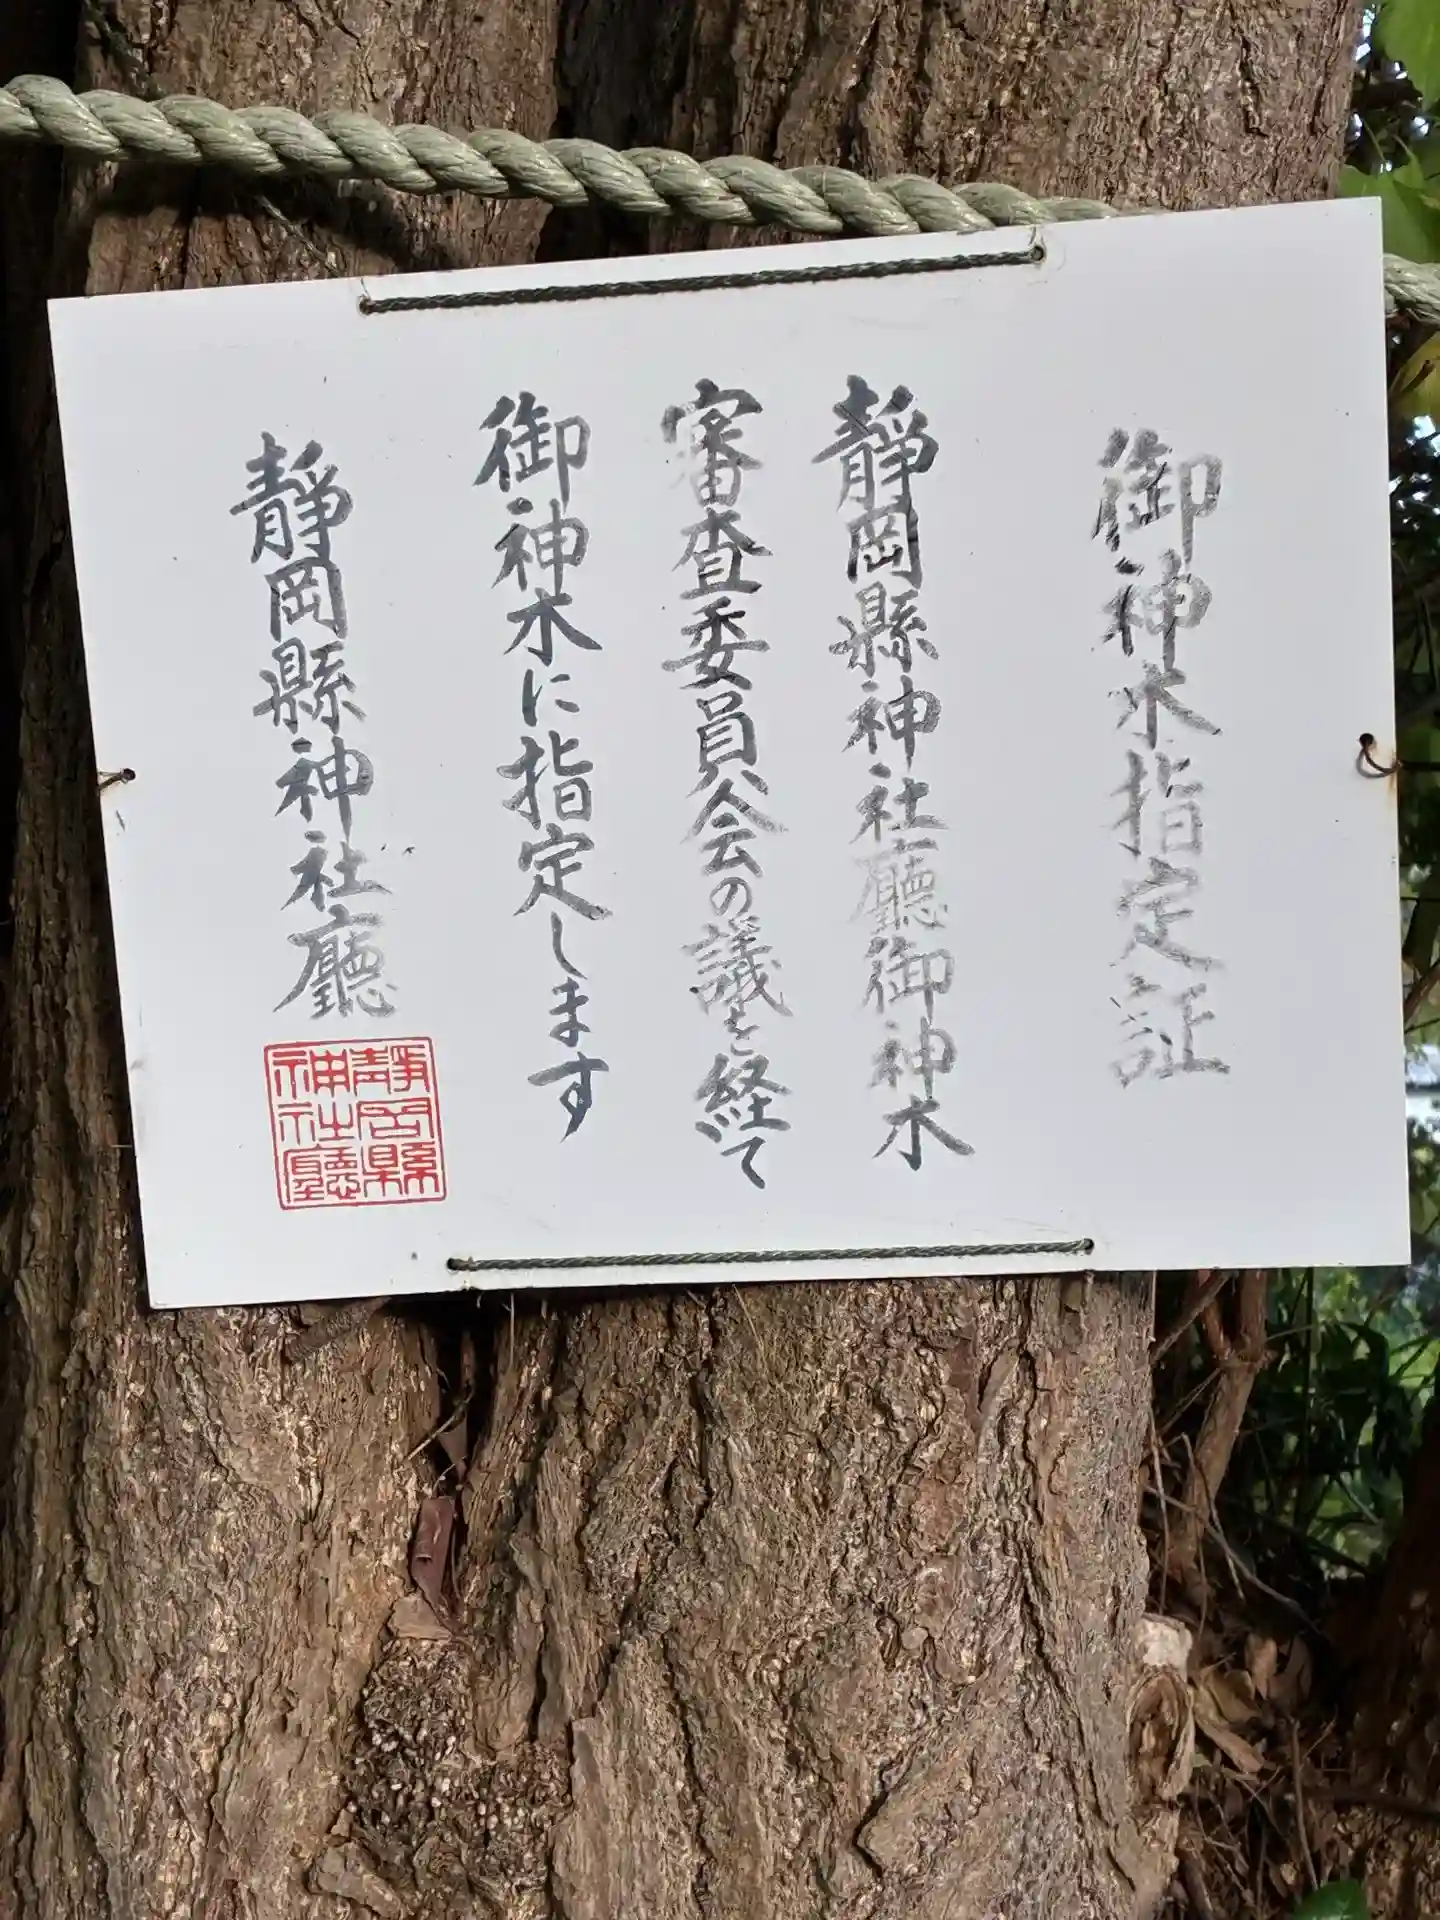 御神木指定証
靜岡縣神社廳御神木
審査委員会の議を経て
御神木に指定します
靜岡縣神社廳
靜岡縣
神社廳